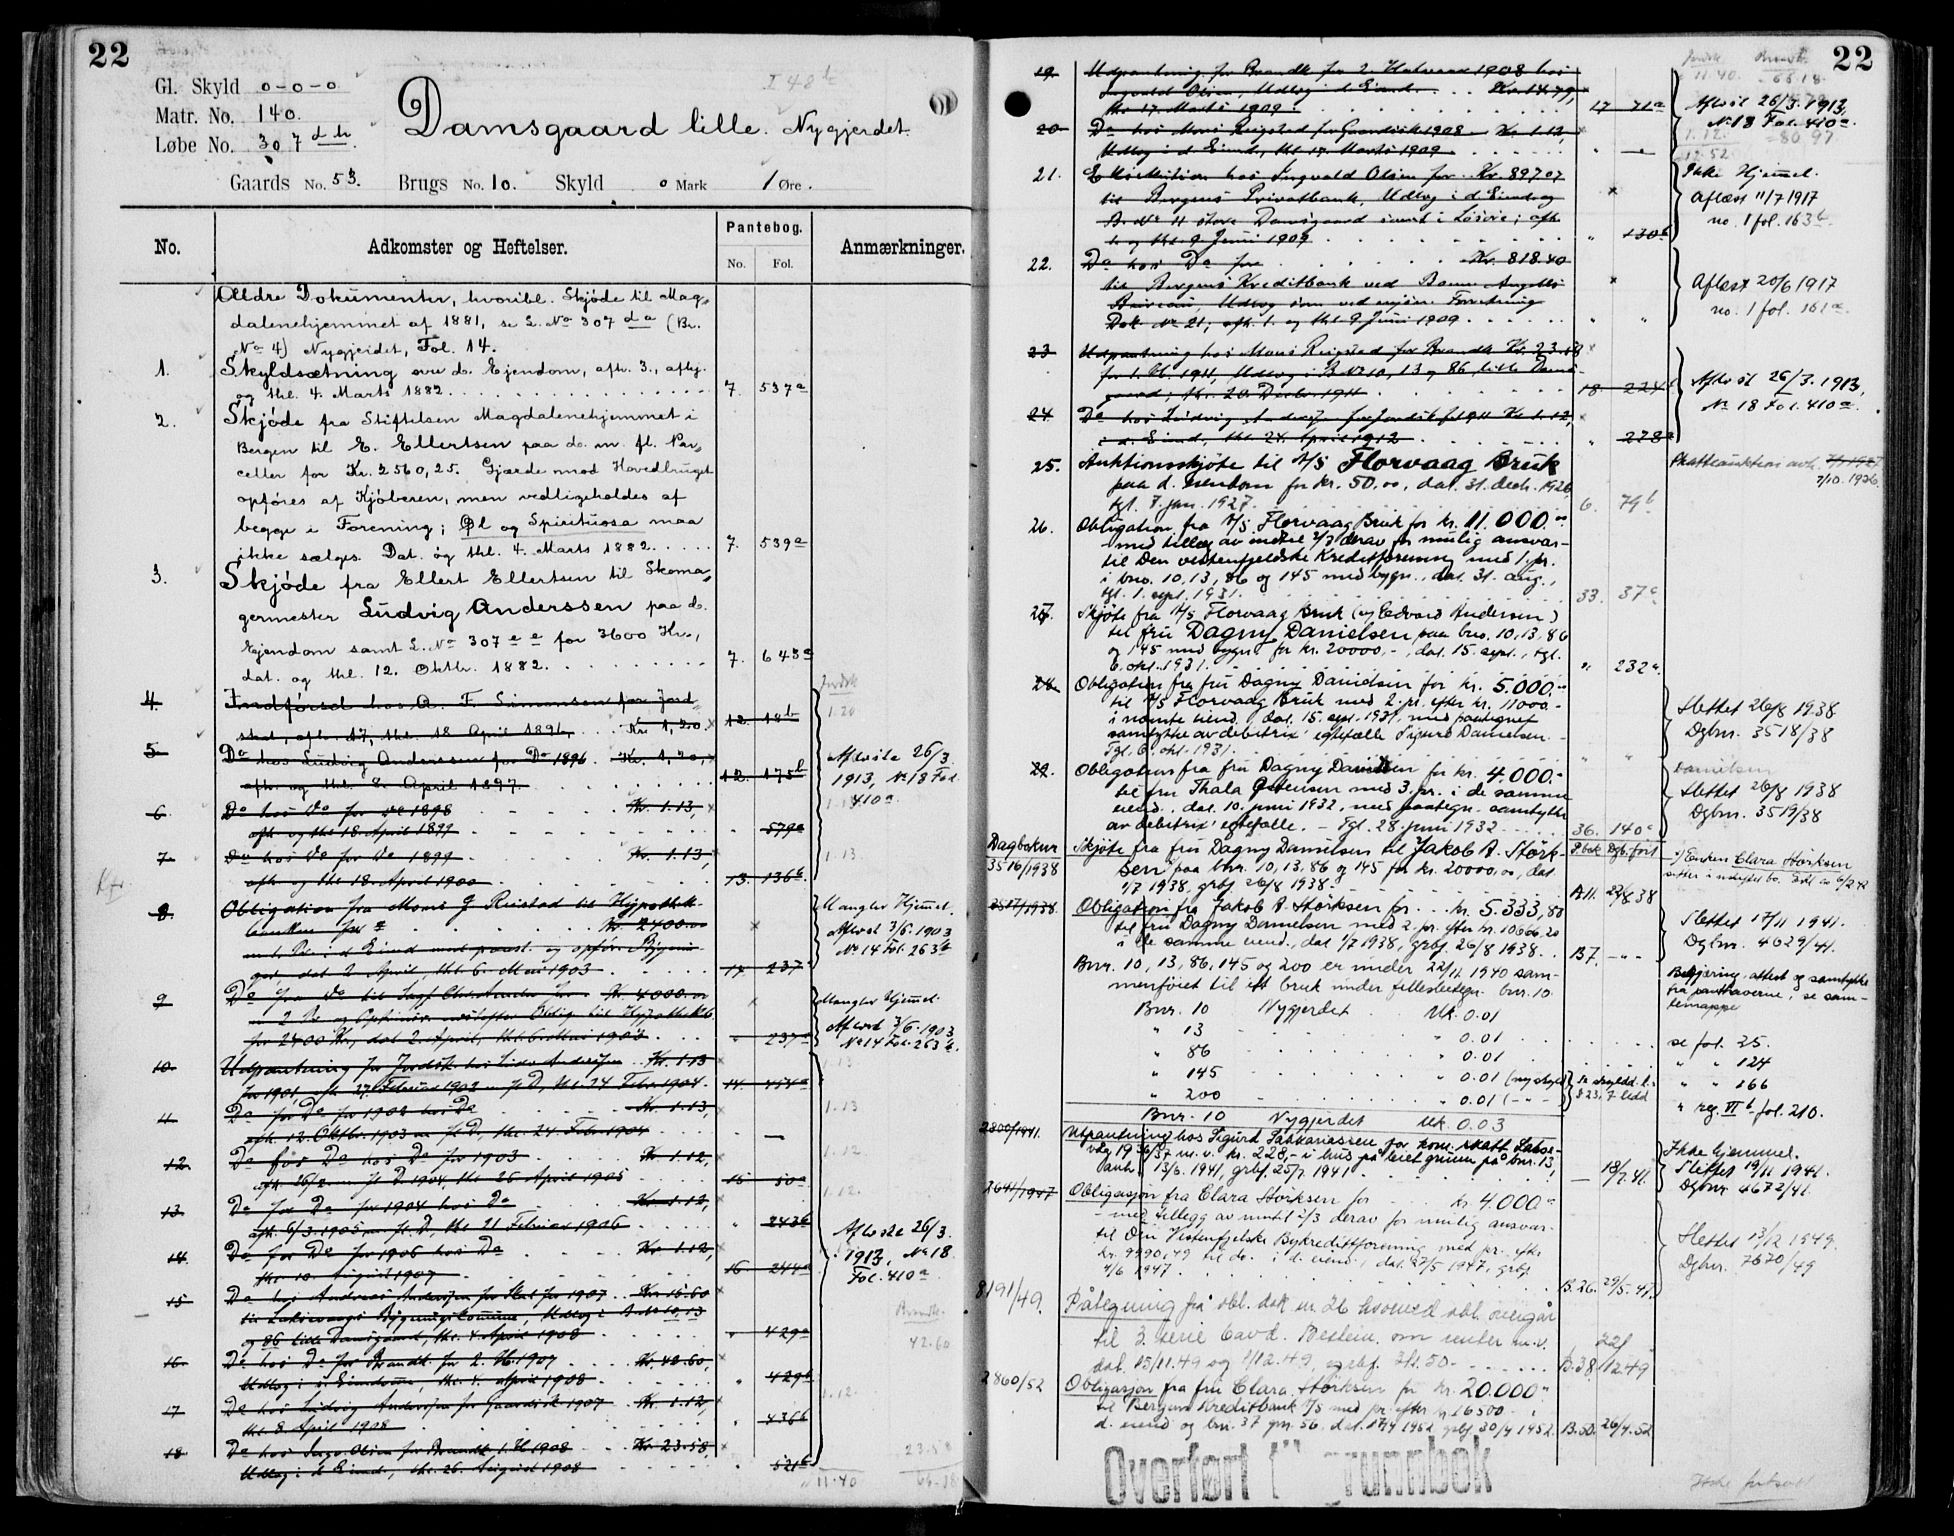 22
Gl. Skyld 0-0-0
Matr. No. 140.
Løbe No. 307 d b
Damsgaard lille. Nygjerdet.
Gaards No. 53. Brugs No. 10. Skyld 0 Mark 1 Øre.
No. Adkomster og Heftelser. Pantebog. No. Fol. Anmærkninger.
Ældre Dokumenter, hvoribl. Skjøde til Mag-
dalenehjemmet af 1881, se L. No 307 d a (Br.
No 4) Nygjerdet, Fol. 14.
1. Skyldsætning over d. Ejendom, afh. 3., afhj.
og thl. 4. Marts 1882. 7. 537a
2. Skjøde fra Stiftelsen Magdalenehjemmet i
Bergen til E. Ellertsen paa d. m. fl. Par-
celler for Kr. 2560,25. Gjærde mod Hovedbruget
opføres af Kjøberen, men vedligeholdes af
begge i Forening; Øl og Spirituosa maa
ikke sælges. Dat. og thl. 4. Marts 1882. 7. 539a
3. Skjøde fra Ellert Ellertsen til Skoma-
germester Ludvig Anderssen paa d.
Ejendom samt L. No 307 e e for 3600 Kr.,
dat. og thl. 12. Oktbr. 1882. 7. 643a
4. Indførsel hos A. F. Simonsen for Jord-
skat, afh. 17, thl. 18 April 1896. Kr. 1,20. 12. 18b
5. Do hos Ludvig Anderssen for Do 1896. Kr. 1,20,
afh. og thl. 8. April 1897. 12. 175b
Afløste 26/3
1913, No 18 Fol.
410a.
6. Do hos Do for Do 1898 Kr. 1.13,
afh. og thl. 18. April 1899 " 579a
7. Do hos Do for Do 1899 Kr. 1.13,
afh. og thl. 18. April 1900 13. 136b
8. Obligation fra Mons G. Reistad til Hypothek-
banken for Kr. 2400.00
m. 1. Pr. i d. Eiend. med paast. og opfør. Bygnin-
ger, dat. 2. April, thl. 6. Mai 1903 14 237
Mangler Hjemel.
Afløst 3/6. 1903
No 14 Fol. 263b
9 Do fra Do til Kr. 4000.00
for 2400 Kr., dat. 2. April, thl. 6. Mai 1903 " 237a
Mangler Hjemel.
Afløst 3/6. 1903,
No 14 Fol. 263b.
10. Udpantning for Jordsk. hos Ludv. Anderssen Kr. 1.13
for 1901, afh. 27. Februar 1902 m. p. D., thl. 24 Febr. 1904. 14 454a
11. Do for Do for 1902 hos Do Kr. 1.13,
afh. 12. Oktbr. 1903 m. p. D., thl. 24. Febr. 1904
12. Do for Do hos Do for 1903 Kr. 1.12,
thl. 25 April 1905 15 50a
13. Do for Do for 1904 hos Do Kr. 1.12,
afh. 6/3. 1905 m. p. D., thl. 21 Februar 1906 " 243b
14. Do for Do for 1905 hos Do Kr. 1.12,
thl. 10. August 1907 16 244a
Afløste 26/3.
1913, No 18.
Fol. 410a
15 Do hos Andreas Anderssen for Skat for 1907 Kr. 15.60
til Laksevaags Bygningskommune, Udlæg i B. No 10, 13
og 86 lille Damsgaard, thl. 4. April 1908 " 429a
16. Do hos Do for Brandk. for 2. H. 1907 Kr. 42.60,
Udlæg i d. Eiendomme, thl. 4. April 1908 " 429b
17 Do hos Ludvig Anderssen for Jordsk. 1907 Kr. 1.12,
thl. 8 April 1908 " 436b
18. Do hos Ingv. Olsen for Brandk. 1. H 1908 Kr. 23.58,
Udlæg i d. Eiend., thl. 26. August 1908 " 521b
22
19. Udpantning for Brandk. for 2. Halvaar 1908 hos
Ingvald Olsen, Udlæg i d. Eiend. Kr. 14.79,
thl. 17. Marts 1909. 17 71a
Afløst 26/3. 1913,
No 18 Fol. 410a.
20 Do hos Mons Reigstad for Jordsk. 1908 Kr. 1.12,
Udlæg i d. Eiend., thl. 17. Marts 1909.
21. Exekution hos Ingvald Olsen for Kr. 897.07
til Bergens Privatbank, Udlæg i d. Eiend. og
B. No 11 store Damsgaard samt i Løsøre; afh.
1. og thl. 9 Juni 1909 " 130b
Ikke Hjemel.
Aflæst 11/7 1917
no. 1 fol. 163b.
22. Do hos Do for Kr. 818.40
til Bergens Kreditbank ved
Udlæg som ved forrige Forretning
Dok. No 21; afh. 1. og thl. 9 Juni 1909. " "
Aflæst 20/6 1917
no. 1 fol. 161a
23 Udpantning hos Mons Reigstad for Brandk. Kr. 23.58
for 1. H. 1911, Udlæg i B. No 10, 13 og 86, lille Dams-
gaard; thl. 20. Decbr. 1911 18. 224
24. Do hos Ludvig Anderssen for Jordsk. f. 1911 Kr. 1.12,
i d. Eiend., thl. 24. April 1912 " 278a
Afløst 26/3. 1913,
No 18 Fol. 410a.
25. Auktionsskjøte til A/S Florvaag Bruk
paa d. eiendom for kr. 50,00, dat. 31. decb. 1926
tgl. 7. jan. 1927. 6. 79b
Skatteauktion avh. 7/10. 1926.
26. Obligation fra A/S Florvaag Bruk for kr. 11.000.00
- med tillæg av indtil 2/3 derav for mulig ansvar -
til Den vestenfjeldske Kreditforening med 1. pr.
i bno. 10, 13, 86 og 145 med bygn., dat. 31. aug.,
tgl. 1. sept. 1931. 33. 37a
27. Skjøte fra A/S Florvaag Bruk (v/ Edvard Andersen)
til fru Dagny Danielsen paa bno. 10, 13, 86
og 145 med bygn. for kr. 20000,-, dat. 15. sept., tgl.
6. okt. 1931. " 232a.
28. Obligation fra fru Dagny Danielsen for kr. 5.000.-
til A/S Florvaag Bruk med 2. pr. efter kr. 11000.-
i nævnte eiend., dat. 15. sept. 1931, med paategnet
samtykke av debitrix' egtefælle Sigurd Danielsen.
Tgl. 6. okt. 1931. " "
Slettet 26/8 1938
Dgbnr. 3518/38
29. Obligation fra fru Dagny Danielsen for kr. 4.000.-
til fru Thala Gstensen med 3. pr. i de samme
eiend., dat. 10. juni 1932, med paategn. samtykke
av debitrix' egtefælle. - Tgl. 28. juni 1932 36. 140a
Slettet 26/8 1938
Dgbnr. 3519/38
Dagboknr. P.bok Dgb. ført
3516/1938 Skjøte fra fru Dagny Danielsen til Jakob A. Størk-
sen paa bnr. 10, 13, 86 og 145 for kr. 20000,00, dat.
1/7 1938, grbf. 26/8 1938. A 11. 22/8 38
Enken Clara Størksen
sitter i uskiftet bo.
3517/1938. Obligation fra Jakob A. Størksen for kr. 5.333,80
til fru Dagny Danielsen med 2. pr. efter kr. 10666,20
i de samme eiend., dat. 1/7 1938, grbf. 26/8 1938. B7. - " -
Slettet 17/11 1941.
Dgbnr. 4629/41.
Bnr. 10, 13, 86, 145 og 200 er under 22/11 1940 sam-
menføiet til ett bruk under fellesbetegn. bnr. 10.
Begjæring, attest og samtykke
fra panthaverne, se sam-
lemappe
Bnr. 10 Nygjerdet Mk. 0.01
" 13 " 0.01 se fol. 25.
" 86 " 0.01 " " 124
" 145 " 0.01 (ny skyld) " " 166
" 200 " 0.01 (- " -) " reg. VI b fol. 210.
Bnr. 10 Nygjerdet Mk. 0.03
2800/1941. Utpantning hos Sigurd Sakkariassen for kom. skatt Lakse-
våg 1936/37 m. v. kr. 228,- i hus på leiet grunn på bnr. 13,
avh. 13/6. 1941, grbf. 25/7 1941. 18/7 41.
Ikke hjemmel.
Slettet 19/11 1941.
Dgbnr 4672/41.
2641/1947 Obligasjon fra Clara Størksen for kr. 4.000
- med tillegg av inntil 2/3 derav for mulig ansvar -
til Den Vestenfjelske Bykredittforening med pr. efter
kr. 9990,49 til do. i d. eiend., dat. 27/5 1947, grbf.
4/6 1947. B.26. 29/5. 47.
Slettet 13/12 1949.
Dgbnr. 7670/49
8191/49. Påtegning på obl. dok nr. 26 hvorved obl. overgår
til 3. serie 6 avd. Bestem. om renter m.v.
dat. 15/11.49 og 1/12.49, grbf. 3/1.50 B.38. 22/12 49
2860/52 Obligasjon fra fru Clara Størksen for kr. 20.000
til Bergens Kreditbank A/S med pr. efter kr. 16500.- i
d. eiend og bnr. 37 gnr. 56. dat. 17/4 1952 grbf 30/4 1952. B.50. 26/4.52
Overført til grunnbok